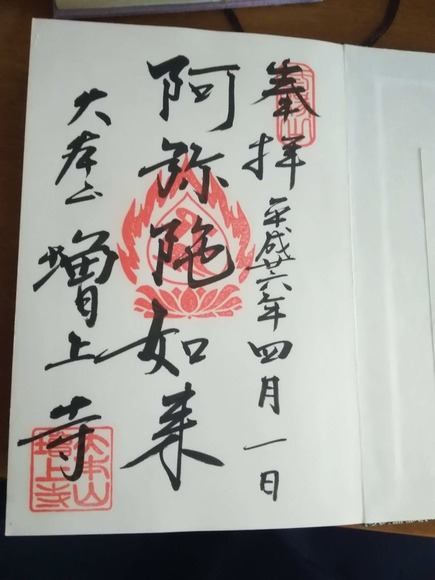 奉拝 平成廿六年四月一日
阿弥陀如来
大本山 増上寺
大本山増上寺